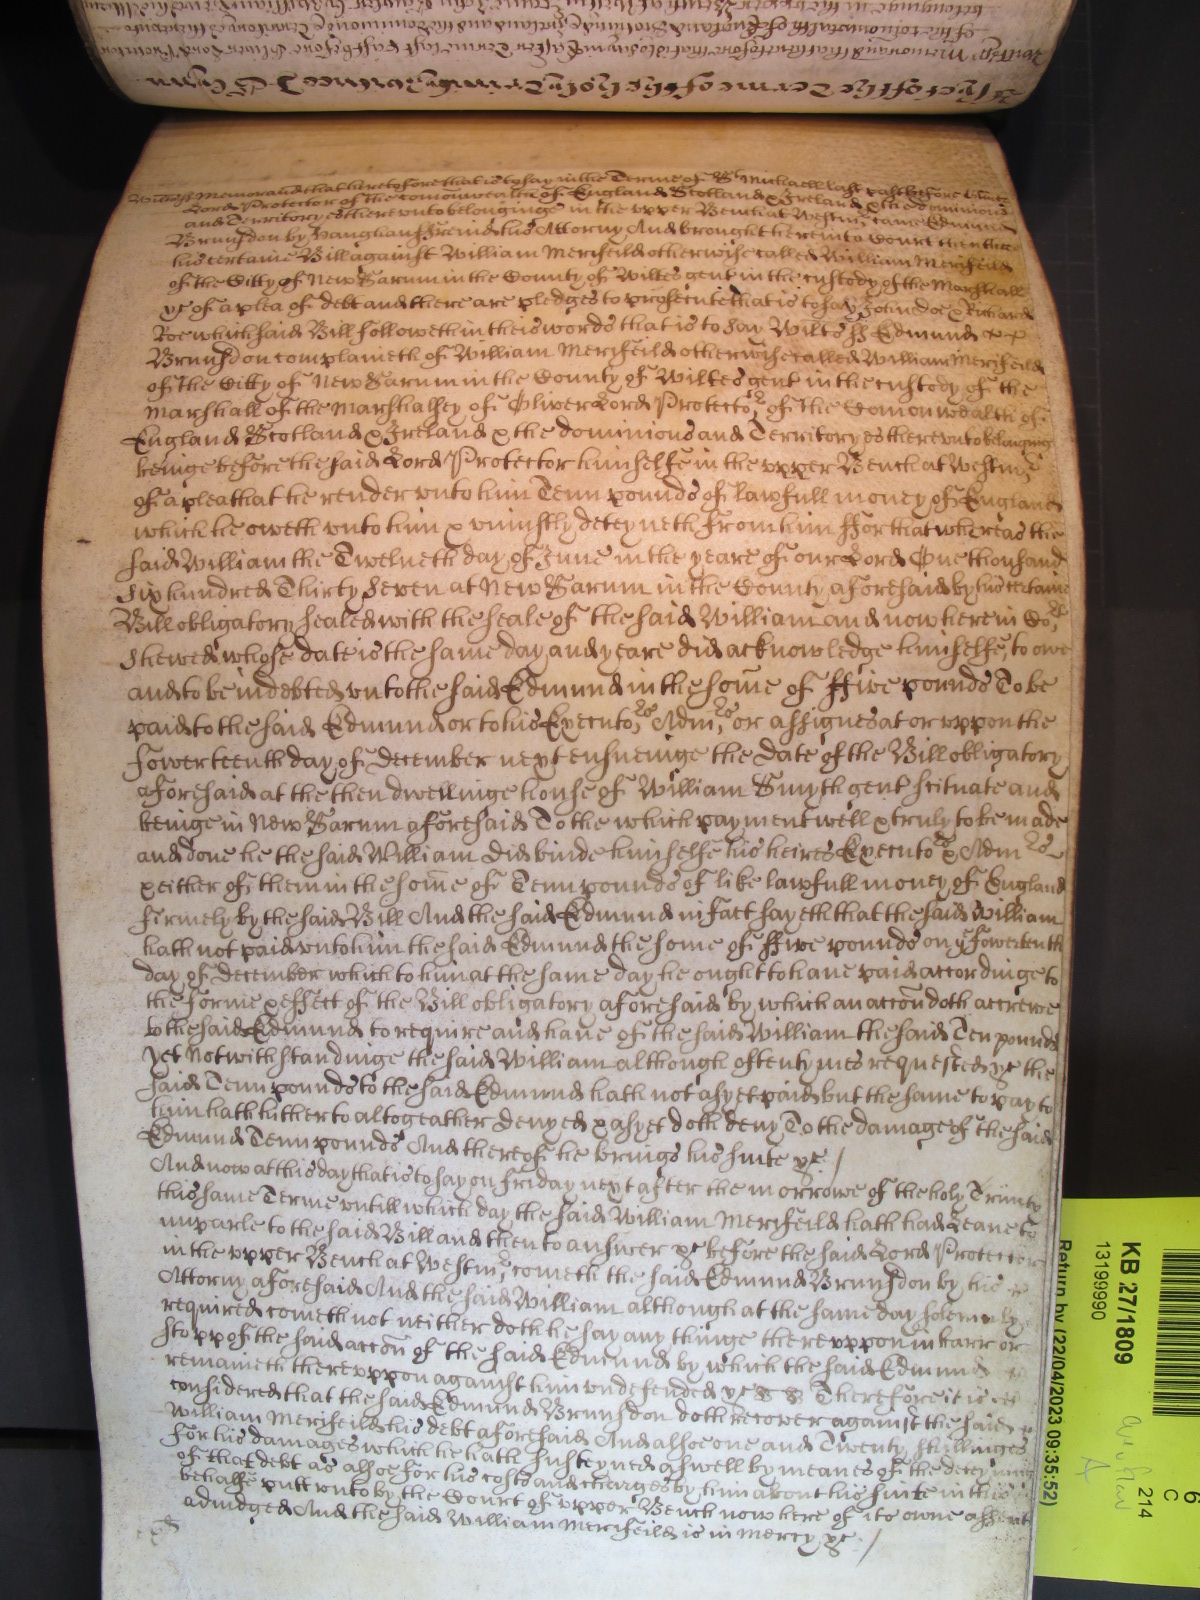 Wiltes ss Memorand that heretofore that is to say in the Terme of St Michaell last past before Oliver
Lord Protector of the comonwealth of England Scotland & Ireland & the dominions
and Territoryes thereunto belonginge in the upper Bench at Westmr came Edmund
Brunsdon by Vaughan his Attorny And brought here into Court then there
his certaine Bill against William Merifeild otherwise called William Merifeild
of the Citty of New Sarum in the County of Wiltes gent in the custody of the Marshall
&c of a plea of debt and there are pledges to prosecute that is to say John doe & Richard
Roe which said Bill followeth in theis words that is to say Wilts ss Edmund
Brunsdon complaineth of William Merifeild otherwise called William Merifeild
of the Citty of New Sarum in the County of Wiltes gent in the custody of the
Marshall of the Marshalsey of Oliver Lord Protector of the Comonwealth of
England Scotland & Ireland & the dominions and Territoryes thereunto belonginge
beinge before the said Lord Protector himselfe in the upper Bench at Westmr
of a plea that he render unto him Tenn pounds of lawfull money of England
which he oweth unto him & uniustly deteyneth from him ffor that whereas the
said William the Twelveth day of June in the yeare of our Lord One thousand
Six hundred Thirty Seven at New Sarum in the County aforesaid by his certaine
Bill obligatory sealed with the seale of the said William and now here in Cort
shewed whose date is the same day and yeare did acknowledge himselfe to owe
and to be indebted unto the said Edmund in the some of ffive pounds To be
paid to the said Edmund or to his Executors Admrs or assignes at or uppon the
fowerteenth day of December next ensueinge the date of the Bill obligatory
aforesaid at the then dwellinge house of William Smyth gent scituate and
beinge in New Sarum aforesaid To the which payment well & truly to be made
and done he the said William did binde himselfe his heires Executors & Admrs
& either of them in the some of Tenn pounds of like lawfull money of England
firmely by the said Bill And the said Edmund in fact sayeth that the said William
hath not paid unto him the said Edmund the some of ffive pounds on ye fowerteenth
day of December which to him at the same day he ought to have paid accordinge to
the forme & effect of the Bill obligatory aforesaid by which an accon doth accrewe
to the said Edmund to require and have of the said William the said Ten pounds
yet Notwithstandinge the said William although oftentymes requested &c the
said Tenn pounds to the said Edmund hath not as yet paid but the same to pay to
him hath hitherto altogeather denyed & as yet doth deny To the damage of the said
Edmund Tenn pounds And thereof he brings his suite &c /
And now at this day that is to say on Friday next after the morrowe of the holy Trinity
this same Terme untill which day the said William Merifeild hath had Leave to
imparle to the said Bill and then to answer &c before the said Lord Protector
in the upper Bench at Westmr cometh the said Edmund Brunsdon by his
Attorny aforesaid And the said William although at the same day solemnly
required cometh not neither doth he say any thinge thereuppon in barr or
stopp of the said accon of the said Edmund by which the said Edmund
remaineth thereuppon against him undefended &c Therefore it is
considered that the said Edmund Brunsdon doth recover against the said
William Merifeild his debt aforesaid And alsoe one and Twenty shillinges
for his damages which he hath susteyned aswell by meanes of the deteyninge
of that debt as alsoe for his costs and charges by him about his suite in this
behalfe putt unto by the Court of upper Bench now here of its owne assent
adiudged And the said William Merifeild is in Mercy &c /
KB 27/1809
13199990
Return by (22/04/2023 09:35:52)
6
C
214
A